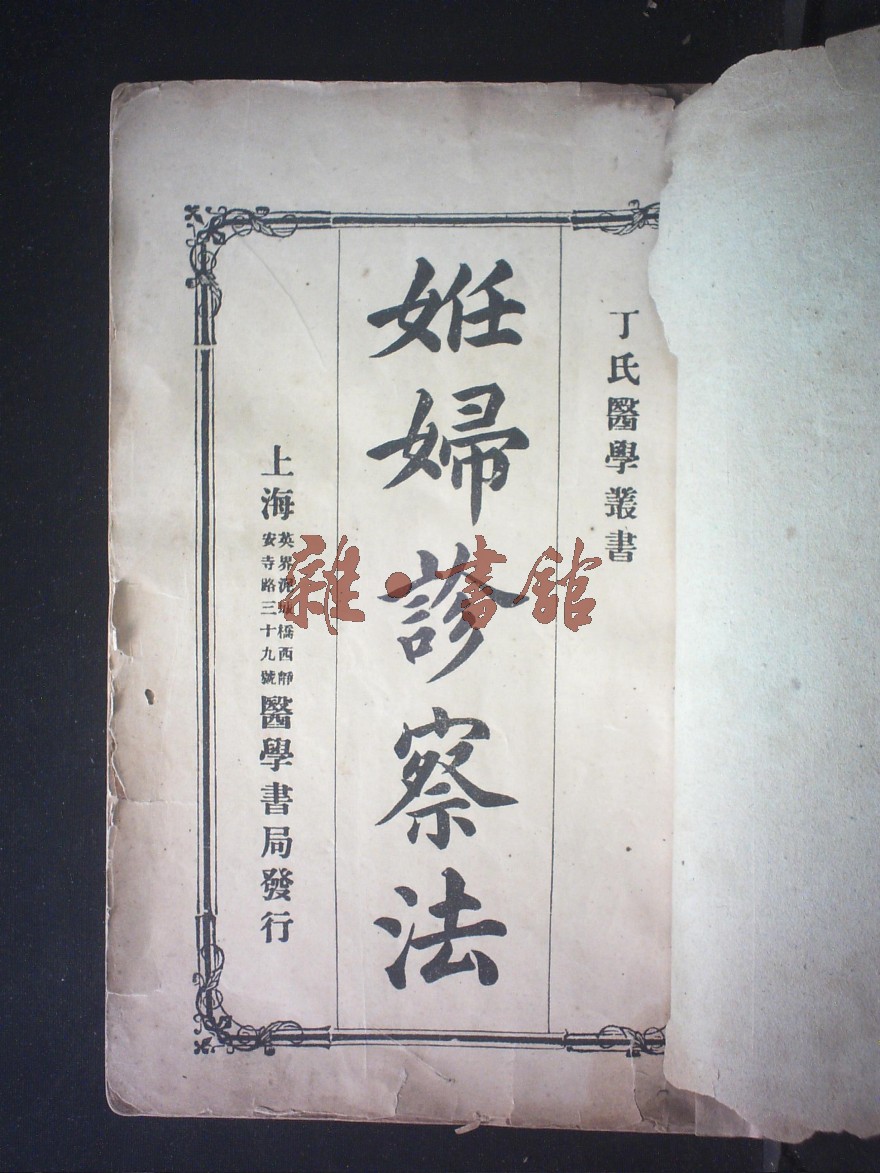 丁氏醫學叢書
妊婦診察法
上海英界泥城橋西靜安寺路三十九號醫學書局發行
雜·書館